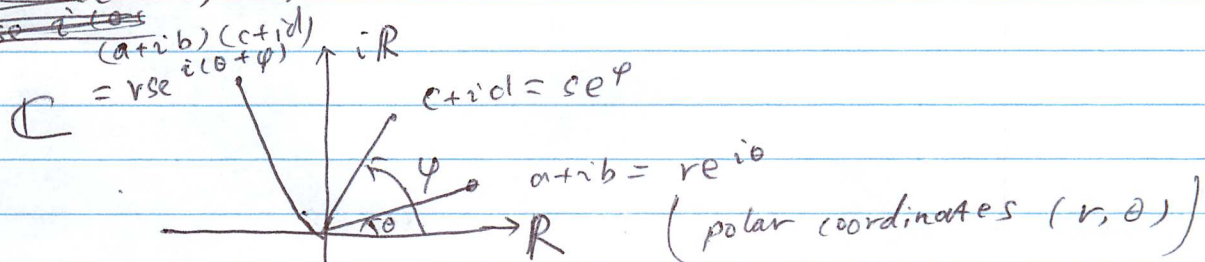 (a+ib)(c+id)
= rse^{i(θ+φ)}
iℝ
ℂ
c+id = se^φ
φ
a+ib = re^{iθ}
θ
ℝ
(polar coordinates (r, θ))